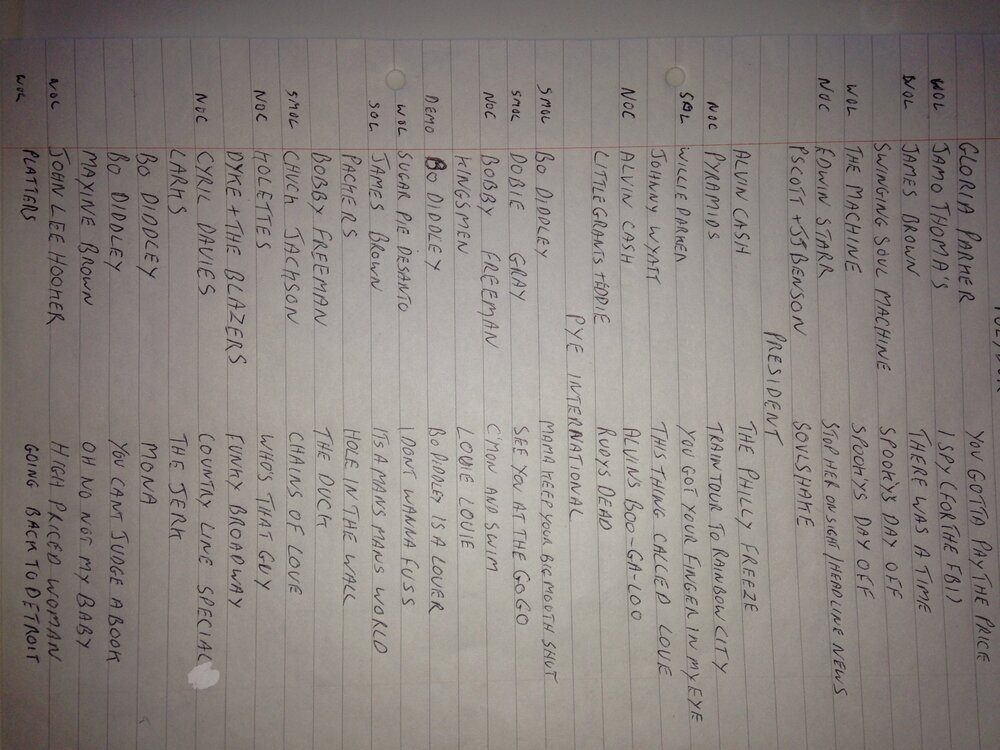 GLORIA PARKER YOU GOTTA PAY THE PRICE
WOL JAMO THOMA'S I SPY (FOR THE FBI)
WOL JAMES BROWN THERE WAS A TIME
SWINGING SOUL MACHINE SPOOKYS DAY OFF
WOL THE MACHINE SPOOKYS DAY OFF
NOC EDWIN STARR STOP HER ON SIGHT / HEADLINE NEWS
P SCOTT + JJ BENSON SOULSHAKE
PRESIDENT
ALVIN CASH THE PHILLY FREEZE
NOC PYRAMIDS TRAIN TOUR TO RAINBOW CITY
SOL WILLIE PARKER YOU GOT YOUR FINGER IN MY EYE
JOHNY WYATT THIS THING CALLED LOVE
NOC ALVIN CASH ALVINS BOO-GA-LOO
LITTLE GRANTS + EDDIE RUDYS DEAD
PYE INTERNATIONAL
SMOL BO DIDDLEY MAMA KEEP YOUR BIG MOUTH SHUT
SMOL DOBIE GRAY SEE YOU AT THE GO GO
NOC BOBBY FREEMAN C'MON AND SWIM
KINGSMEN LOUIE LOUIE
DEMO BO DIDDLEY BO DIDDLEY IS A LOVER
WOL SUGAR PIE DESANTO I DONT WANNA FUSS
SOL JAMES BROWN ITS A MANS MANS WORLD
PACKERS HOLE IN THE WALL
BOBBY FREEMAN THE DUCK
SMOL CHUCK JACKSON CHAINS OF LOVE
NOC KOLETTES WHO'S THAT GUY
DYKE + THE BLAZERS FUNKY BROADWAY
NOC CYRIL DAVIES COUNTRY LINE SPECIAL
LARKS THE JERK
BO DIDDLEY MONA
BO DIDDLEY YOU CANT JUDGE A BOOK
MAXINE BROWN OH NO NOT MY BABY
WOL JOHN LEE HOOKER HIGH PRICED WOMAN
WOL PLATTERS GOING BACK TO DETROIT